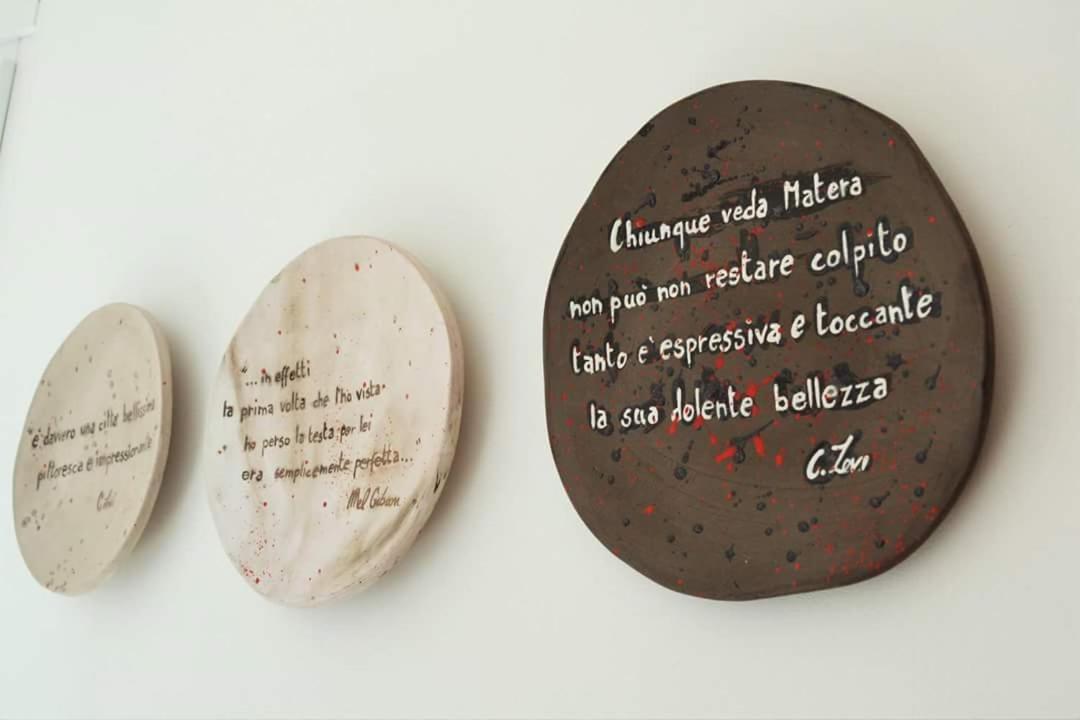 "è davvero una città bellissima
pittoresca e impressionante"
"... in effetti
la prima volta che l'ho vista
ho perso la testa per lei
era semplicemente perfetta..."
Mel Gibson
Chiunque veda Matera
non può non restare colpito
tanto è espressiva e toccante
la sua dolente bellezza
C. Levi